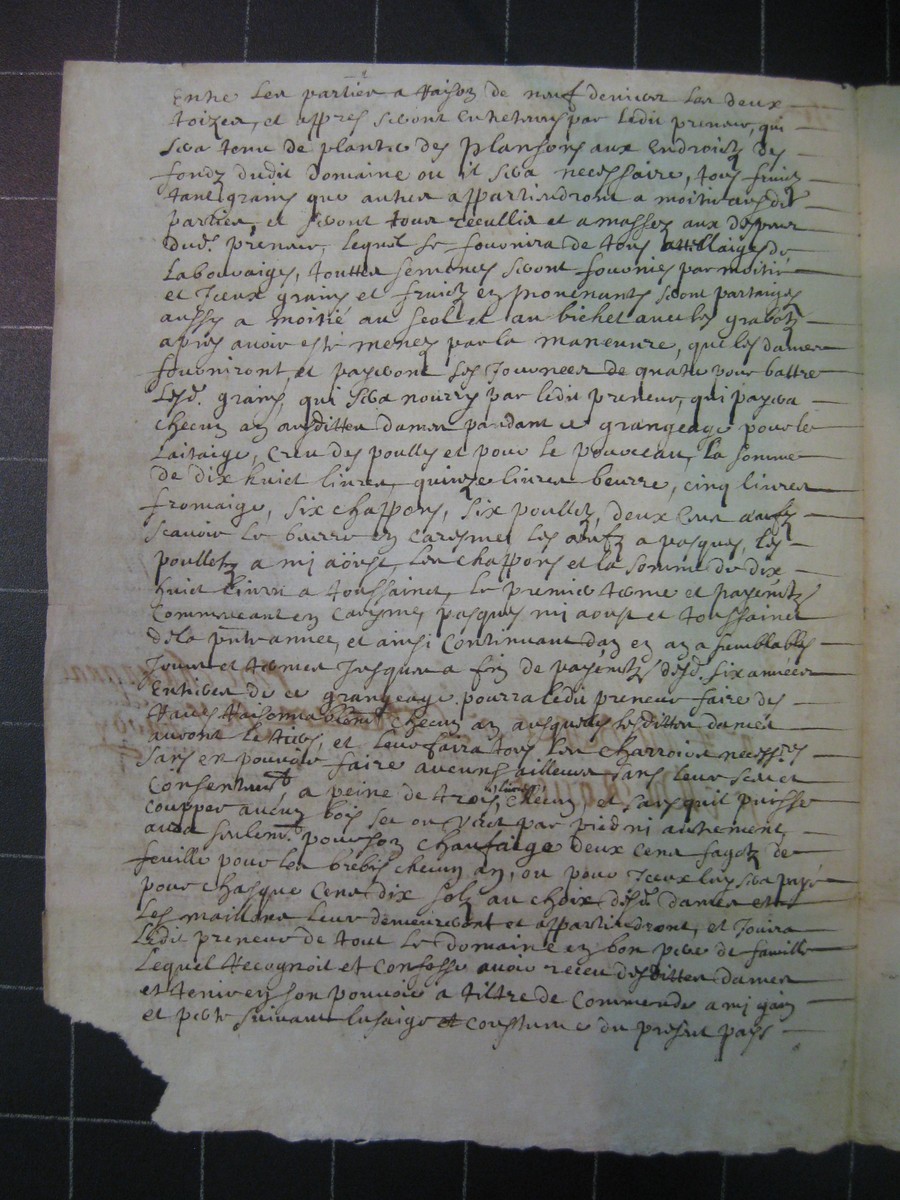 Entre les parties a Raison de neuf deniers les deux
toizes, et appres seront entretenus par ledit preneur, qui
sera tenu de planter des plansons aux endroictz des
fondz dudit domaine ou il sera necessaire, tous fruictz
tant grains que autres appartiendront a moitié ausdittes
parties, et seront tous receullis et amassez aux despens
dud. preneur, lequel se fournira de tous attellaiges de
Labouraiges, touttes semences seront fournies par moitié
et Iceux grains et fruictz en provenants seront partaigés
aussy a moitié au seol et au bichet avec les grabotz
apres avoir esté menez par la maneuvre, que les dames
fourniront, et payeront les Journees de quatre pour battre
Lesd. grains, qui sera nourry par ledit preneur, qui payera
checun an ausdittes dames pendant ce grangeage pour le
Laitaige, creu des poulles et pour le pourceau, la somme
de dix huict livres, quinze livres beurre, cinq livres
fromaige, six chappons, six poulletz, deux cens œufz
scavoir le beurre en caresme, les œufz a pasques, les
poulletz a mi aoust, les chappons et la somme de dix
huict livres a toussainct, le premier terme et payementz
Commenceant en caresme, pasques mi aoust et toussainct
de la pnte annee, et ainsi continuant d'an en an a semblables
Jours et termes Jusques a fin de payementz desd. six annees
Entieres de ce grangeage pourra ledit preneur faire des
Raves Raisonnablement checun an ausquelles lesdittes dames
auront le tiers, et leur faira tous les charrois necess.res
sans en pouvoir faire aucuns ailleurs sans leur sceu et
Consentement, a peine de trois livres checun, et sans quil puisse
coupper aucun bois sec ou verd par pied ni autrement
aura seulemt pour son chaufaige deux cens fagotz de
feuille pour les brebis checun an, ou pour Iceux luy sera payé
pour chasque cens dix solz au choix desd. dames et
Les maillons leur demeureront et appartiendront, et Jouira
Ledit preneur de tout le domaine en bon pere de famille
Lequel Recognoit et Confesse avoir receu desdittes dames
et tenir en son pouvoir a tiltre de Commende a mi gain
et perte suivant lusaige et coustume du present pays